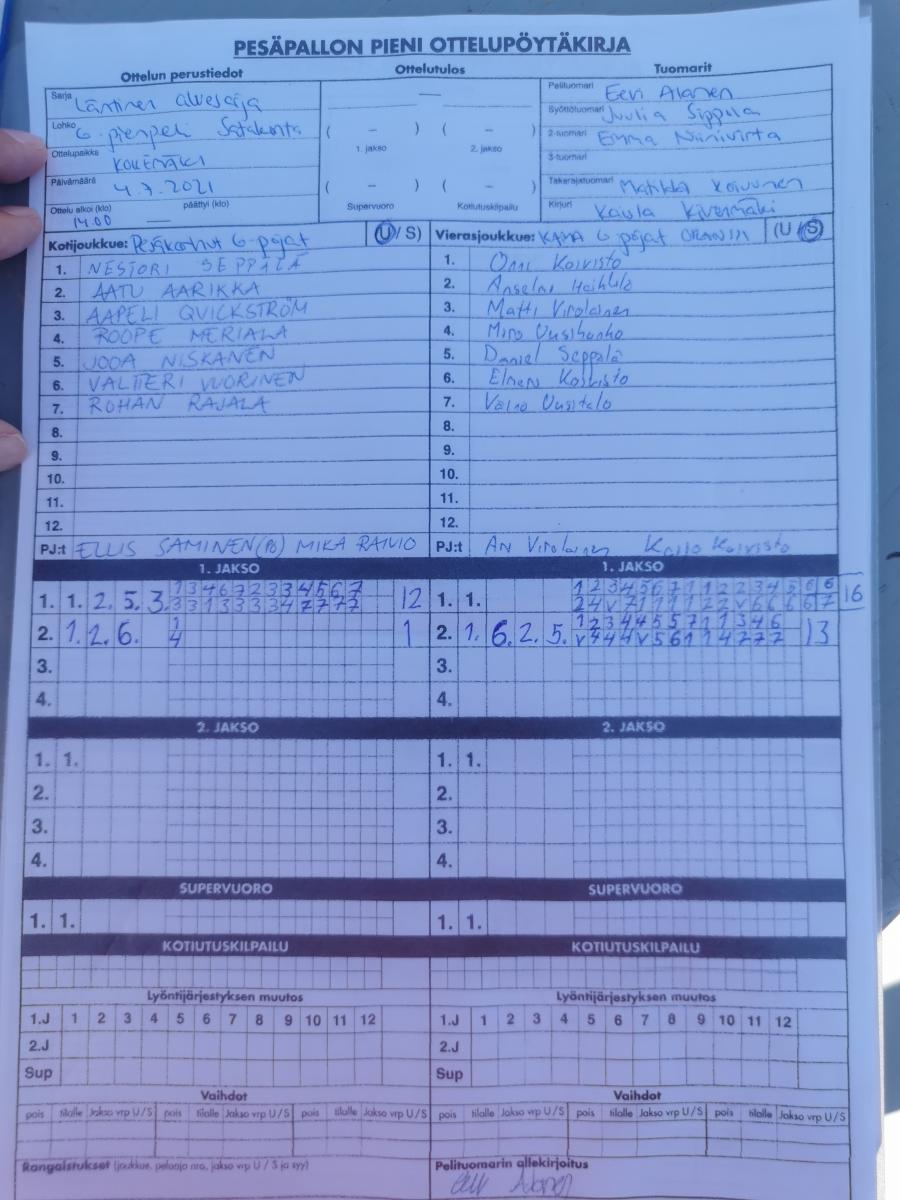 PESÄPALLON PIENI OTTELUPÖYTÄKIRJA
Ottelun perustiedot Ottelutulos Tuomarit
Sarja Läntinen aluesarja
Lohko 6-pienpeli Satakunta
Ottelupaikka KOKEMÄKI
Päivämäärä 4.7.2021
Ottelu alkoi (klo) päättyi (klo)
14.00 —
—
( – ) ( – )
1. jakso 2. jakso
( – ) ( – )
Supervuoro Kotiutuskilpailu
Pelituomari Eevi Alanen
Syöttötuomari Juulia Sippola
2-tuomari Emma Niinivirta
3-tuomari
Takarajatuomari Matilda Koivunen
Kirjuri Kaisla Kivenmäki
Kotijoukkue: Pesäkarhut 6-pojat (U / S)
1. NESTORI SEPPÄLÄ
2. AATU AARIKKA
3. AAPELI QVICKSTRÖM
4. ROOPE MERIALA
5. JOOA NISKANEN
6. VALTTERI VUORINEN
7. ROHAN RAJALA
8.
9.
10.
11.
12.
PJ:t ELLIS SAMINEN (PB) MIKA RAIVIO
Vierasjoukkue: KAMA 6-pojat ORANSSI (U / S)
1. Onni Koivisto
2. Anselmi Heikkilä
3. Matti Virolainen
4. Miro Uusihonko
5. Daniel Seppälä
6. Elmeri Koivisto
7. Väinö Uusitalo
8.
9.
10.
11.
12.
PJ:t Ari Virolainen Kallo Koivisto
1. JAKSO 1. JAKSO
1. 1. 2. 5. 3. 1 3 4 6 7 2 3 3 4 5 6 7 12
3 3 1 3 3 3 3 4 7 7 7 7
2. 1. 2. 6. 1 1
4
3.
4.
1. 1. 1 2 3 4 5 6 7 1 1 2 2 3 4 5 6 6 16
2 4 v 7 1 1 1 1 2 2 v 6 6 6 6 7
2. 1. 6. 2. 5. 1 2 3 4 4 5 5 7 1 1 3 4 6 13
v 4 4 4 v 5 6 1 1 4 7 7 7
3.
4.
2. JAKSO 2. JAKSO
1. 1. 1. 1.
2. 2.
3. 3.
4. 4.
SUPERVUORO SUPERVUORO
1. 1. 1. 1.
KOTIUTUSKILPAILU KOTIUTUSKILPAILU
Lyöntijärjestyksen muutos Lyöntijärjestyksen muutos
1.J 1 2 3 4 5 6 7 8 9 10 11 12 1.J 1 2 3 4 5 6 7 8 9 10 11 12
2.J 2.J
Sup Sup
Vaihdot Vaihdot
pois tilalle Jakso vrp U/S pois tilalle Jakso vrp U/S pois tilalle Jakso vrp U/S pois tilalle Jakso vrp U/S pois tilalle Jakso vrp U/S pois tilalle Jakso vrp U/S
Rangaistukset (joukkue, pelaaja nro, jakso vrp U / S ja syy) Pelituomarin allekirjoitus
Eevi Alanen